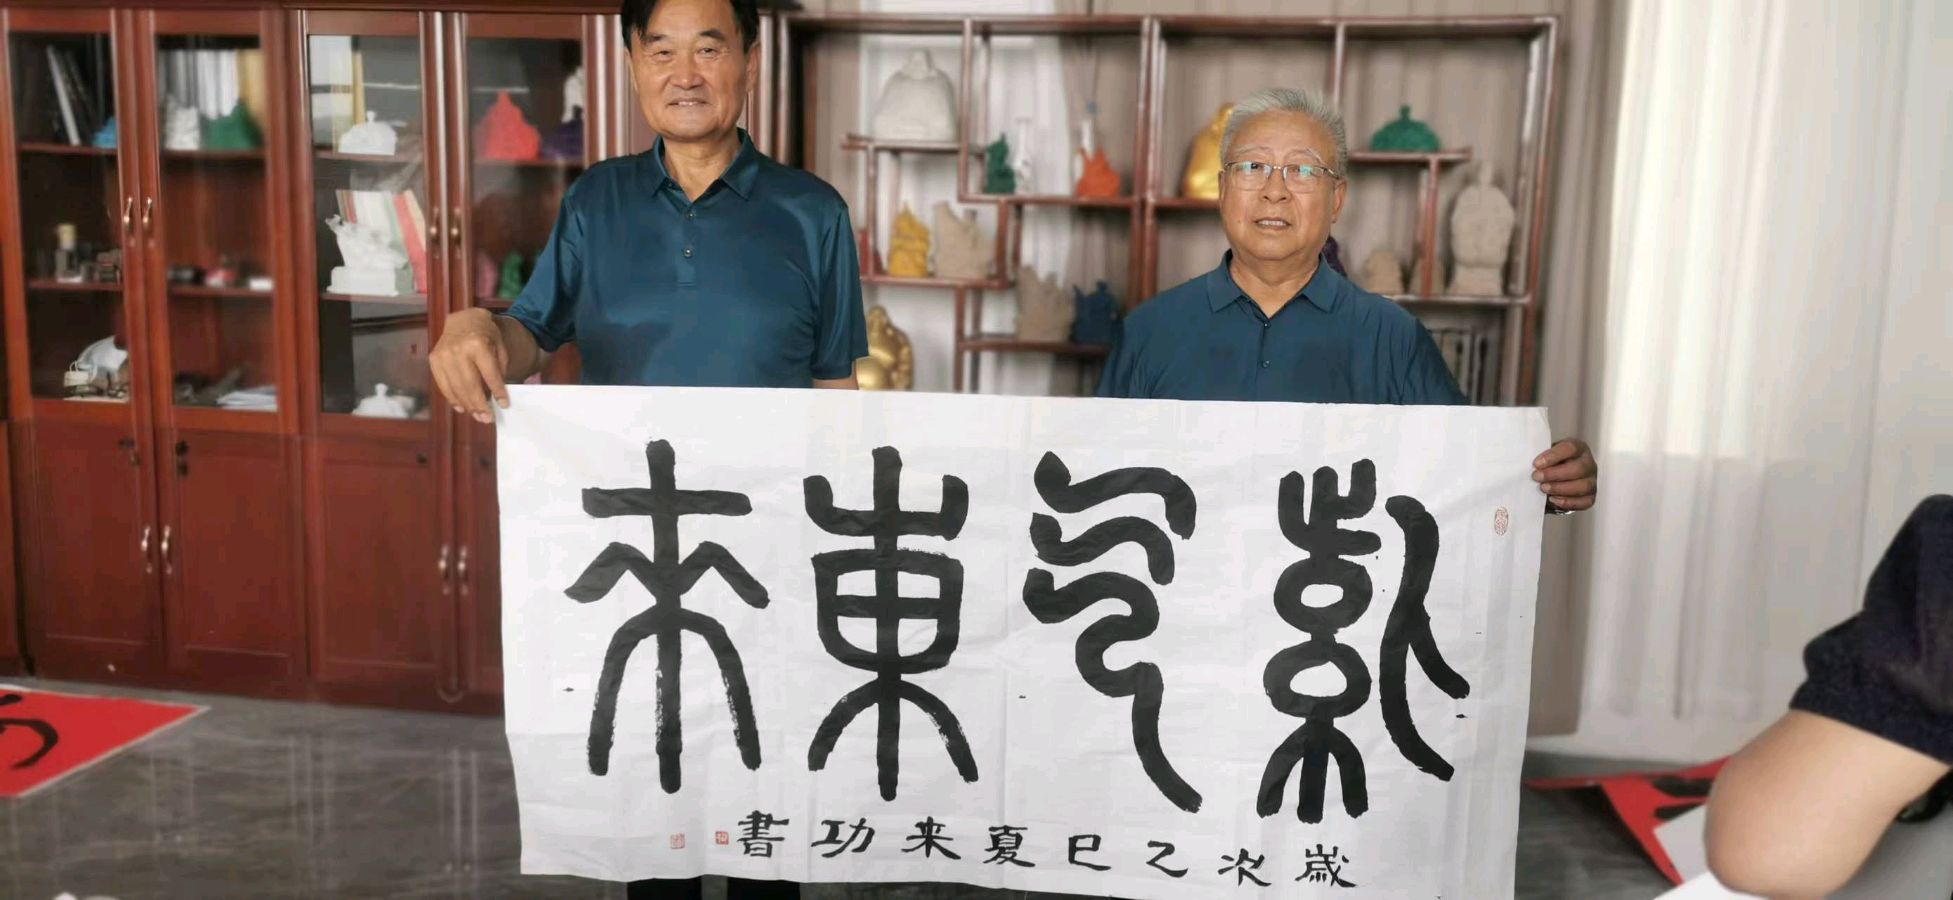 紫气東来
歲次乙巳夏来功書